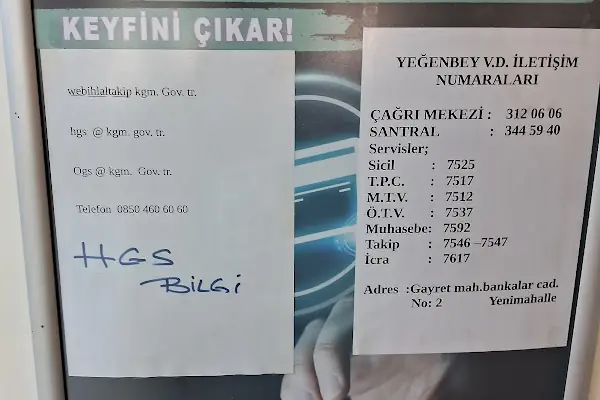 KEYFİNİ ÇIKAR!
webihlaltakip kgm. Gov. tr.
hgs @ kgm. gov. tr.
Ogs @ kgm. Gov. tr.
Telefon 0850 460 60 60
HGS
BİLGİ
YEĞENBEY V.D. İLETİŞİM
NUMARALARI
ÇAĞRI MEKEZİ : 312 06 06
SANTRAL : 344 59 40
Servisler;
Sicil : 7525
T.P.C. : 7517
M.T.V. : 7512
Ö.T.V. : 7537
Muhasebe: 7592
Takip : 7546 –7547
İcra : 7617
Adres :Gayret mah.bankalar cad.
No: 2 Yenimahalle